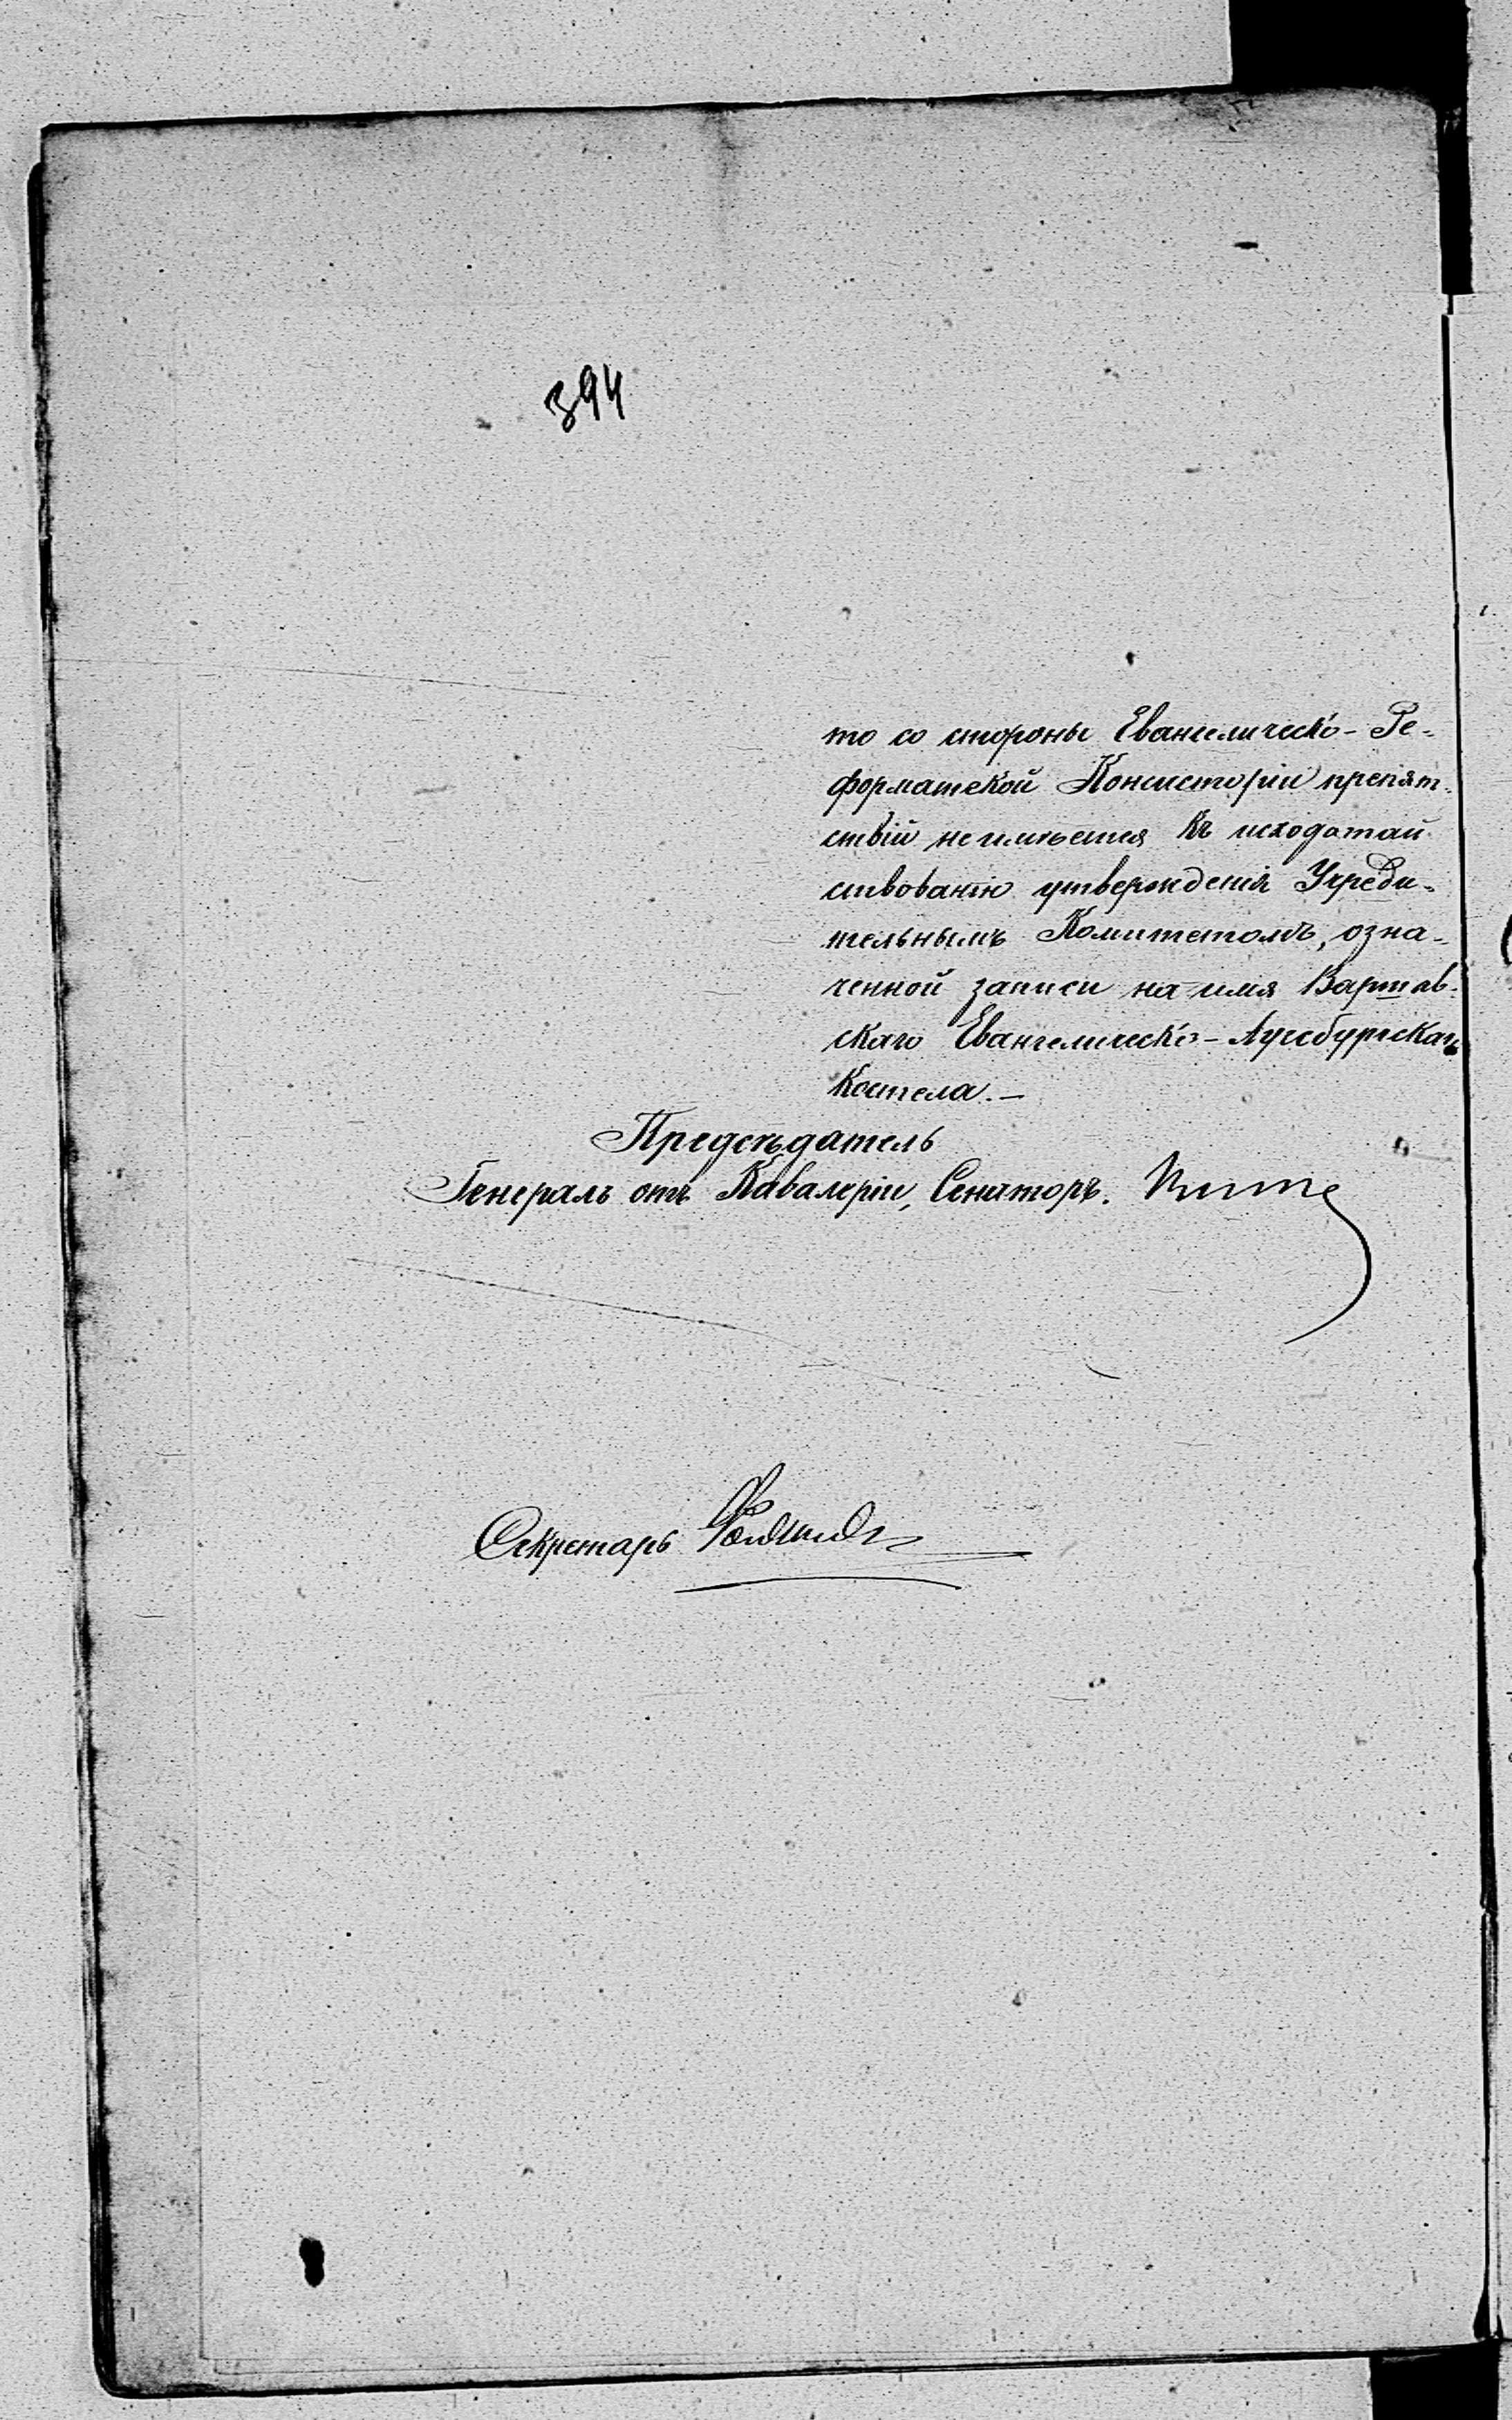 394
то со стороны Евангелическо-Ре-
форматской Консисторіи препят-
ствій не имѣется къ исходатай
ствованію утвержденія Учреди-
тельнымъ Комитетомъ, озна-
ченной записи на имя Варшав-
скаго Евангелическо-Аугсбургскаго
Костела.—
Предсѣдатель
Генералъ отъ Кавалеріи, Сенаторъ.
Секретарь